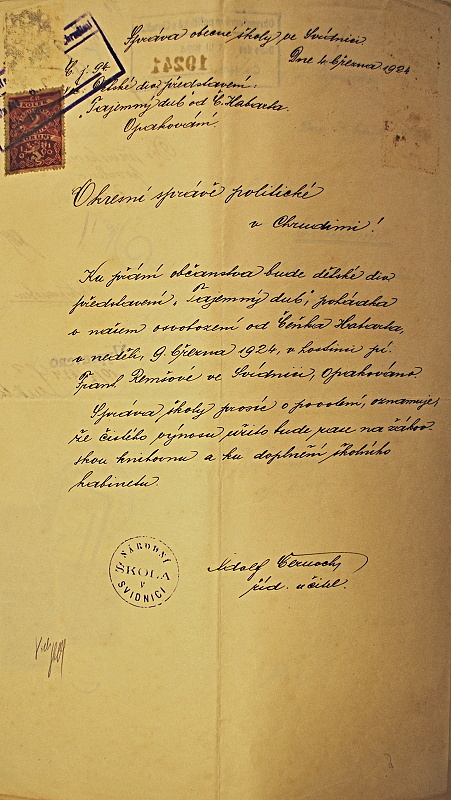 Správa obecné školy ve Svídnici.
Dne 4. března 1924
Č. j. 94.
Dětské div. představení.
"Tajemný dub" od Č. Habarta.
Opakování.
Okresní správě politické
v Chrudimi!
Ku přání občanstva bude dětské div.
představení "Tajemný dub", pohádka
o našem osvobození od Čeňka Habarta,
v neděli, 9. března 1924, v hostinci pí.
Frant. ve Svídnici, opakováno.
Správa školy prosíc o povolení, oznamuje,
že čistého výnosu užito bude zase na žákov-
skou knihovnu a ku doplnění školního
kabinetu.
NÁRODNÍ
ŠKOLA
V
SVIDNICI
Adolf Černoch
říd. učitel.